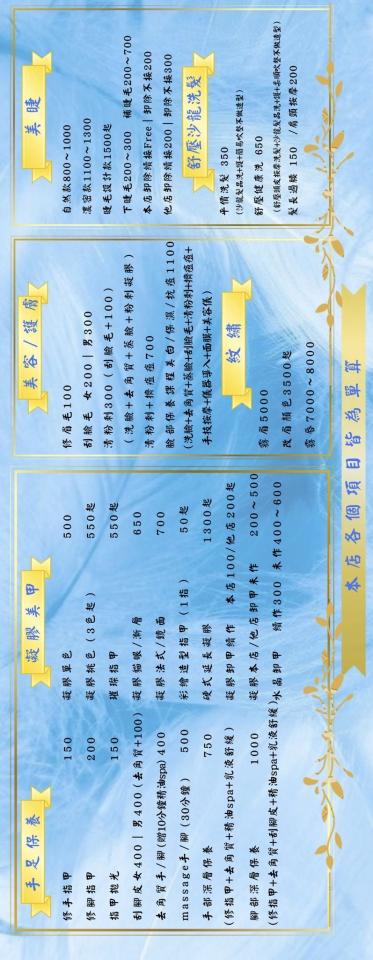 手足保養
修手指甲 150
修腳指甲 200
指甲拋光 150
刮腳皮女400｜男400(去角質+100)
去角質手/腳(贈10分鐘精油spa)400
massage手/腳(30分鐘) 500
手部深層保養 750
(修指甲+去角質+精油spa+乳液舒緩)
腳部深層保養 1000
(修指甲+去角質+刮腳皮+精油spa+乳液舒緩)
凝膠美甲
凝膠單色 500
凝膠跳色 (3色起) 550起
璀璨指甲 550起
凝膠貓眼/漸層 650
凝膠法式/鏡面 700
彩繪造型指甲(1指) 50起
硬式延長凝膠 1300起
凝膠卸甲續作 本店100/他店200起
凝膠本店/他店卸甲未作 200~500
水晶卸甲 續作300 未作400~600
美容/護膚
修眉毛100
刮臉毛 女200｜男300
清粉刺300(刮臉毛+100)
(洗臉+去角質+蒸臉+粉刺凝膠)
清粉刺+擠痘痘700
臉部保養課程美白/保濕/抗痘1100
(洗臉+去角質+蒸臉+刮臉毛+清粉刺+擠痘痘+
手技按摩+儀器導入+面膜+美容儀)
紋繡
霧眉5000
改眉顏色3500起
霧唇7000~8000
美睫
自然款800~1000
濃密款1100~1300
睫毛設計款1500起
下睫毛200~300 補睫毛200~700
本店卸除續接Free｜卸除不接200
他店卸除續接200｜卸除不接300
舒壓沙龍洗髮
平價洗髮 350
(沙龍髮品洗+護+簡易吹整不做造型)
舒壓健康洗 650
(舒壓頭皮按摩洗髮+沙龍髮品洗+護+長頭吹整不做造型)
髮長過膝 150 /肩頸按摩200
本店各個項目皆為單算